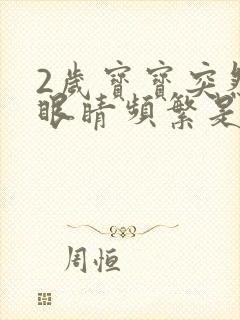 2歲寶寶突然
眼睛頻繁是
周恒